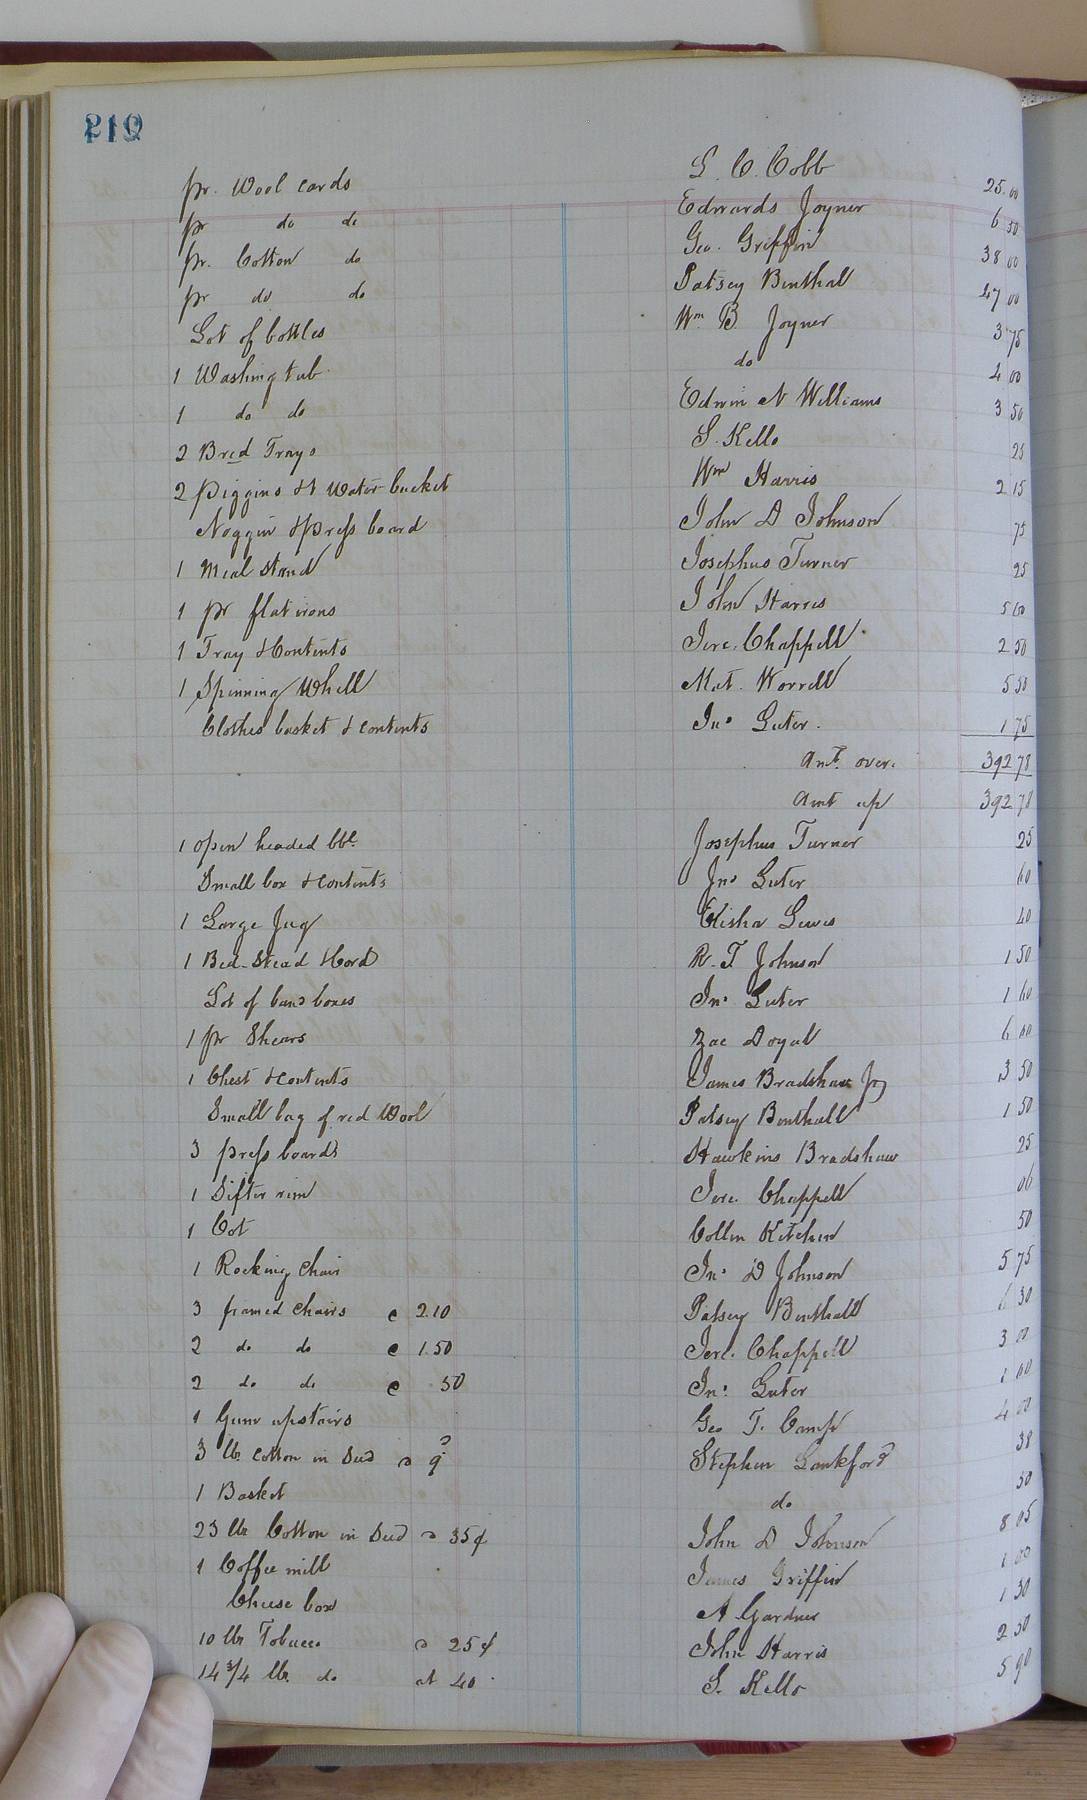 210
pr. Wool cards L. C. Cobb 25.00
pr do do Edwards Joyner 6 50
pr. Cotton do Geo. Griffin 38 00
pr do do Patsey Binthal 47 00
Lot of bottles Wm B Joyner 3 75
1 Washing tub do 4 00
1 do do Edwin N Williams 3 50
2 Bred Trays S. Kello 25
2 piggins & 1 water bucket Wm Harris 2 15
Noggin & press board John D Johnson 75
1 Meal stand Josephus Turner 25
1 pr flat irons John Harris 5 60
1 Tray & Contents Jere. Chappell 2 50
1 Spinning Whell Mat. Worrell 5 50
Clothes basket & contents Jno Luter. 1 75
Amt. over. 392 78
Amt up 392 78
1 open headed bbl. Josephus Turner 25
Small box & contents Jno Luter 60
1 Large Jug Elisha Lewis 40
1 Bed-Stead & Cord R. T. Johnson 1 50
Lot of band boxes Jno Luter 1 60
1 pr Shears Zac Doyal 6 00
1 Chest & contents James Bradshaw Jr 3 50
Small bag of red Wool Patsey Binthall 1 50
3 press boards Hawkins Bradshaw 25
1 Sifter rim Jere. Chappell 06
1 Cot Collin Kitchen 50
1 Rocking Chair Jno D Johnson 5 75
3 framed chairs @ 2.10 Patsey Binthall 6 30
2 do do @ 1.50 Jere. Chappell 3 00
2 do do @ 50 Jno Luter 1 00
1 Gum upstairs Geo T. Camp 4 00
3 lbs cotton in Seed Stephen Lankford 38
1 Basket do 50
23 lbs Cotton in Seed @ 35¢ John D Johnson 8 05
1 Coffee mill James Griffin 1 00
Cheese box A Gardner 1 30
10 lbs Tobacco @ 25¢ John Harris 2 50
14 3/4 lbs. do at 40 S. Kello 5 90